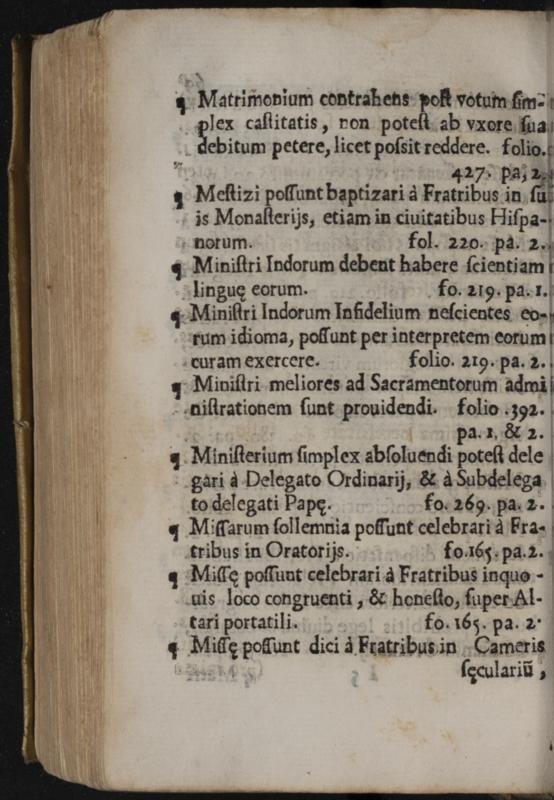 ¶ Matrimonium contrahens poſt votum ſim-
plex caſtitatis, non poteſt ab vxore ſua
debitum petere, licet poſsit reddere. folio.
427. pa, 2.
¶ Meſtizi poſſunt baptizari à Fratribus in ſu
is Monaſterijs, etiam in ciuitatibus Hiſpa-
norum. fol. 220. pa. 2.
¶ Miniſtri Indorum debent habere ſcientiam
linguę eorum. fo. 219. pa. 1.
¶ Miniſtri Indorum Infidelium neſcientes eo-
rum idioma, poſſunt per interpretem eorum
curam exercere. folio. 219. pa. 2.
¶ Miniſtri meliores ad Sacramentorum admi
niſtrationem ſunt prouidendi. folio .392.
pa. 1, & 2.
¶ Miniſterium ſimplex abſoluendi poteſt dele
gari à Delegato Ordinarij, & à Subdelega
to delegati Papę. fo. 269. pa. 2.
¶ Miſſarum ſollemnia poſſunt celebrari à Fra-
tribus in Oratorijs. fo.165. pa.2.
¶ Miſſę poſſunt celebrari à Fratribus inquo -
uis loco congruenti, & honeſto, ſuper Al-
tari portatili. fo. 165. pa. 2.
¶ Miſſę poſſunt dici à Fratribus in Cameris
ſęculariū,